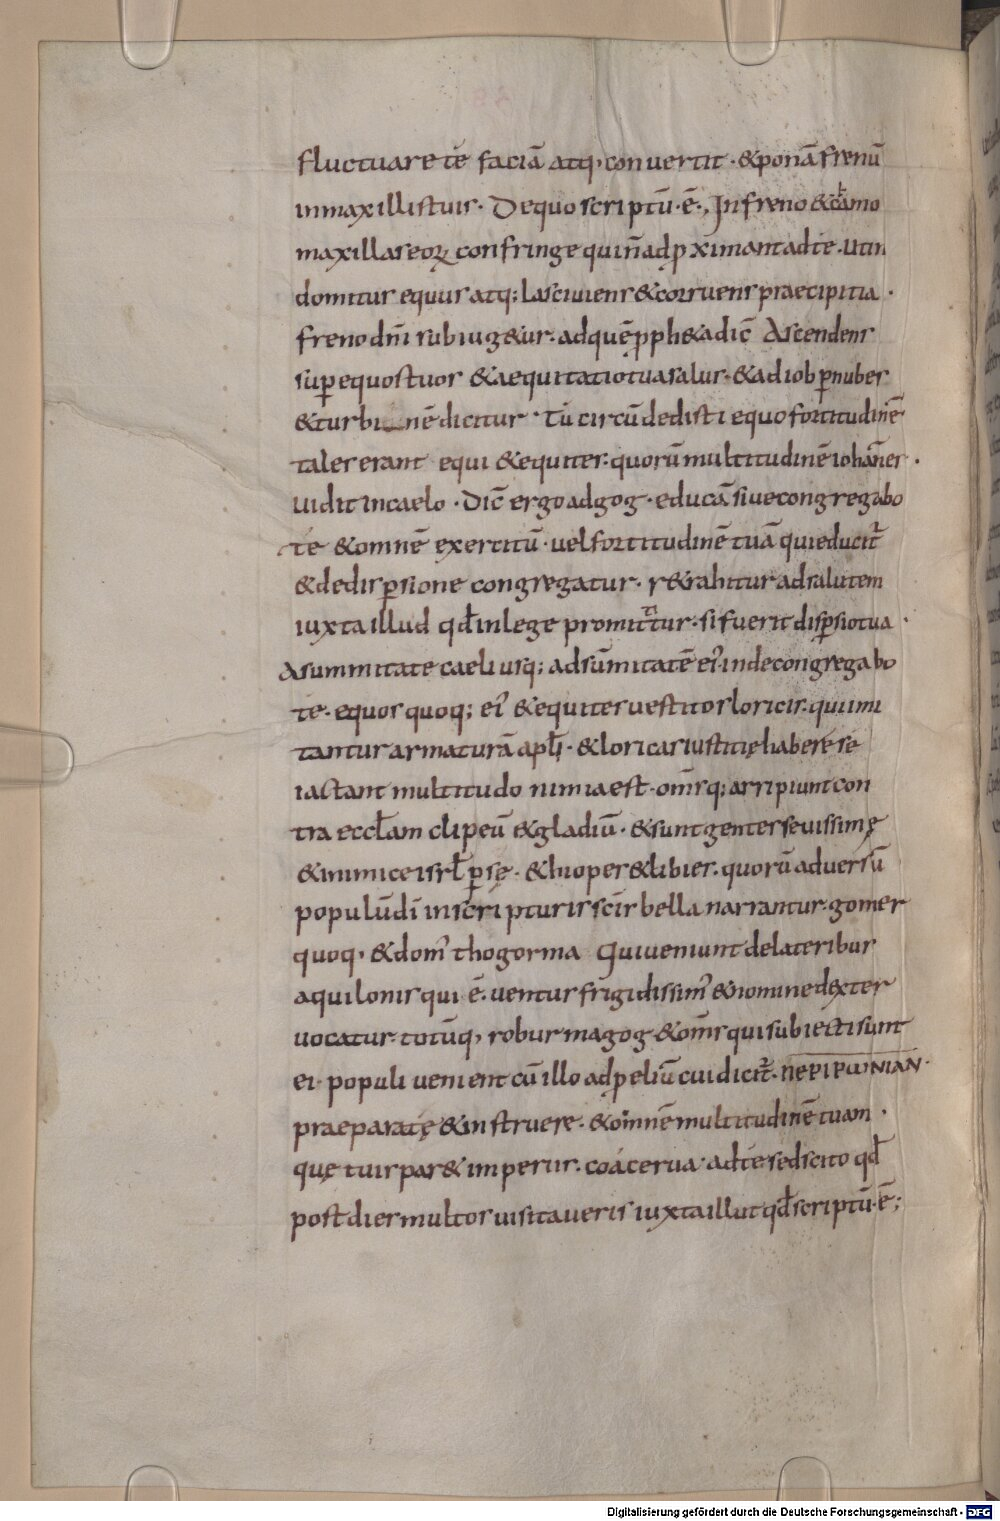 fluctuare te faciā atq; convertit · &ponā frenū
in maxillis tuis · De quo scriptū · ē · In freno & cāmo
maxillas eoꝝ confringe qui n̄ adꝓximant ad te · utin
domitus equus atq; lasciviens & corruens praecipitia ·
freno dn̄i subiug&ur · ad quē ꝓph&a dic̄ Ascendens
suꝑ equos tuos & aequitatio tua salus · & ad iob ꝑ nubes
& turbinē dicitur · Tu circūdedisti equo fortitudinē
tales erant equi & equites · quorū multitudinē iohānes ·
vidit in caelo · Dic̄ ergo ad gog · educā sive congregabo
te & omnē exercitū · vel fortitudinē tuā qui educit̄
& de disꝑsione congregatur · r&rahitur ad salutem
iuxta illud qđ in lege promittitur · si fuerit disꝑsio tua ·
A summitate caeli usq; ad sūmitatē ei' inde congregabo
te · equos quoq; ei' & equites vestitos loricis · qui imi
tantur armaturā apłi · & loricas iustitię habere se
iactant multitudo nimia est · om̄s q; arripiunt con
tra eccłam clipeū & gladiū · & sunt gentes sevissimę
& inimice isrł ꝑsę · & hiopes & libies · quorū adversū
populū dī in scripturis sc̄is bella narrantur · gomer
quoq; & dom' thogorma Qui veniunt de lateribus
aquilonis qui ē · ventus frigidissim' & nomine dexter
vocatur · totūq; robur magog · & om̄s qui subiecti sunt
ei · populi venient cū illo ad ꝓeliū cui dicit̄ ·
praeparate & instruere · & omnē multitudinē tuam ·
quę tuis par& imperiis · coacerva · ad te sed scito qđ
post dies multos visitaveris iuxta illut qđ scriptū · ē ;
Digitalisierung gefördert durch die Deutsche Forschungsgemeinschaft - DFG